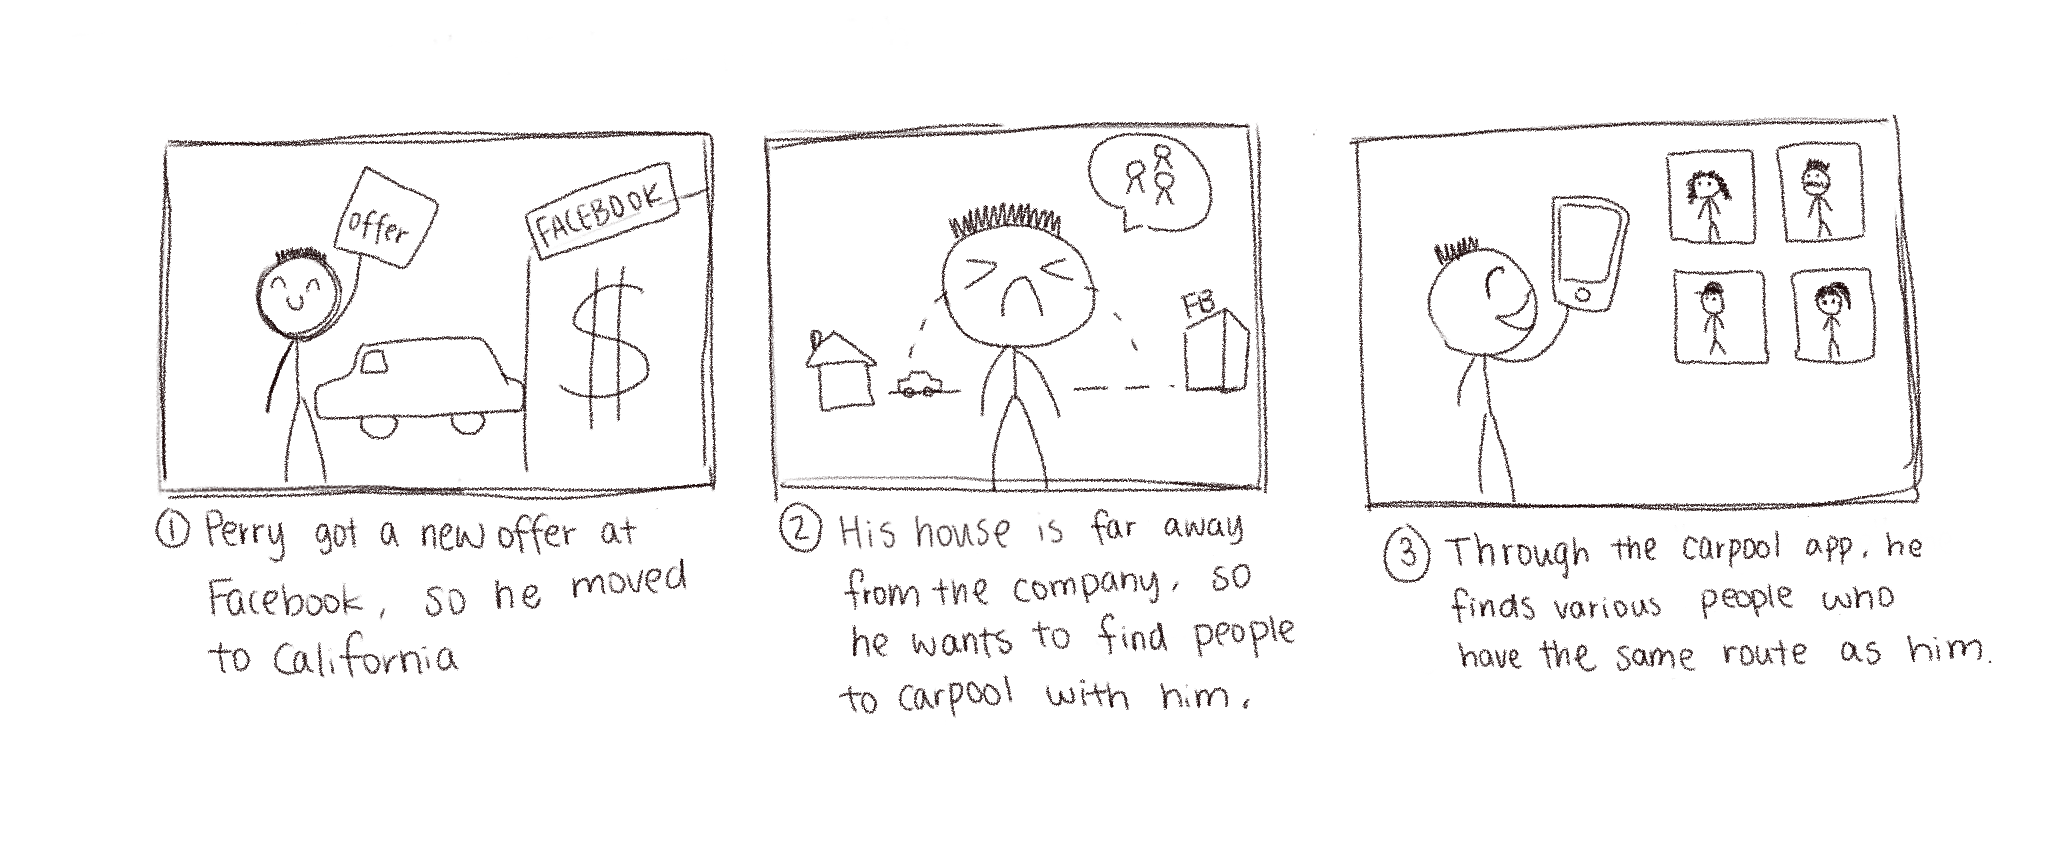 offer
FACEBOOK
$
① Perry got a new offer at
Facebook, so he moved
to California
FB
② His house is far away
from the company, so
he wants to find people
to carpool with him.
③ Through the carpool app, he
finds various people who
have the same route as him.